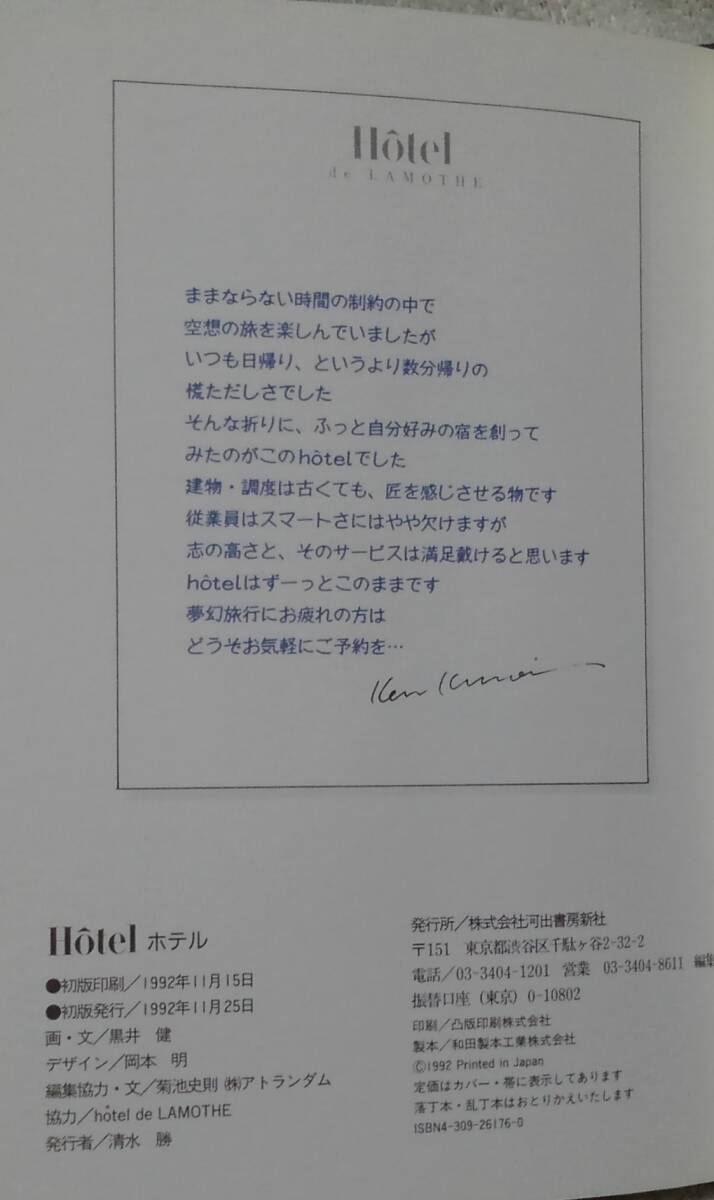 Hôtel
de LAMOTHE
ままならない時間の制約の中で
空想の旅を楽しんでいましたが
いつも日帰り、というより数分帰りの
慌ただしさでした
そんな折りに、ふっと自分好みの宿を創って
みたのがこのhôtelでした
建物・調度は古くても、匠を感じさせる物です
従業員はスマートさにはやや欠けますが
志の高さと、そのサービスは満足戴けると思います
hôtelはずーっとこのままです
夢幻旅行にお疲れの方は
どうぞお気軽にご予約を…
Ken Kuroi
Hôtel ホテル
●初版印刷/1992年11月15日
●初版発行/1992年11月25日
画・文/黒井 健
デザイン/岡本 明
編集協力・文/菊池史則 ㈱アトランダム
協力/hôtel de LAMOTHE
発行者/清水 勝
発行所/株式会社河出書房新社
〒151 東京都渋谷区千駄ヶ谷2-32-2
電話/03-3404-1201 営業 03-3404-8611 編集
振替口座(東京)0-10802
印刷/凸版印刷株式会社
製本/和田製本工業株式会社
©1992 Printed in Japan
定価はカバー・帯に表示してあります
落丁本・乱丁本はおとりかえいたします
ISBN4-309-26176-0